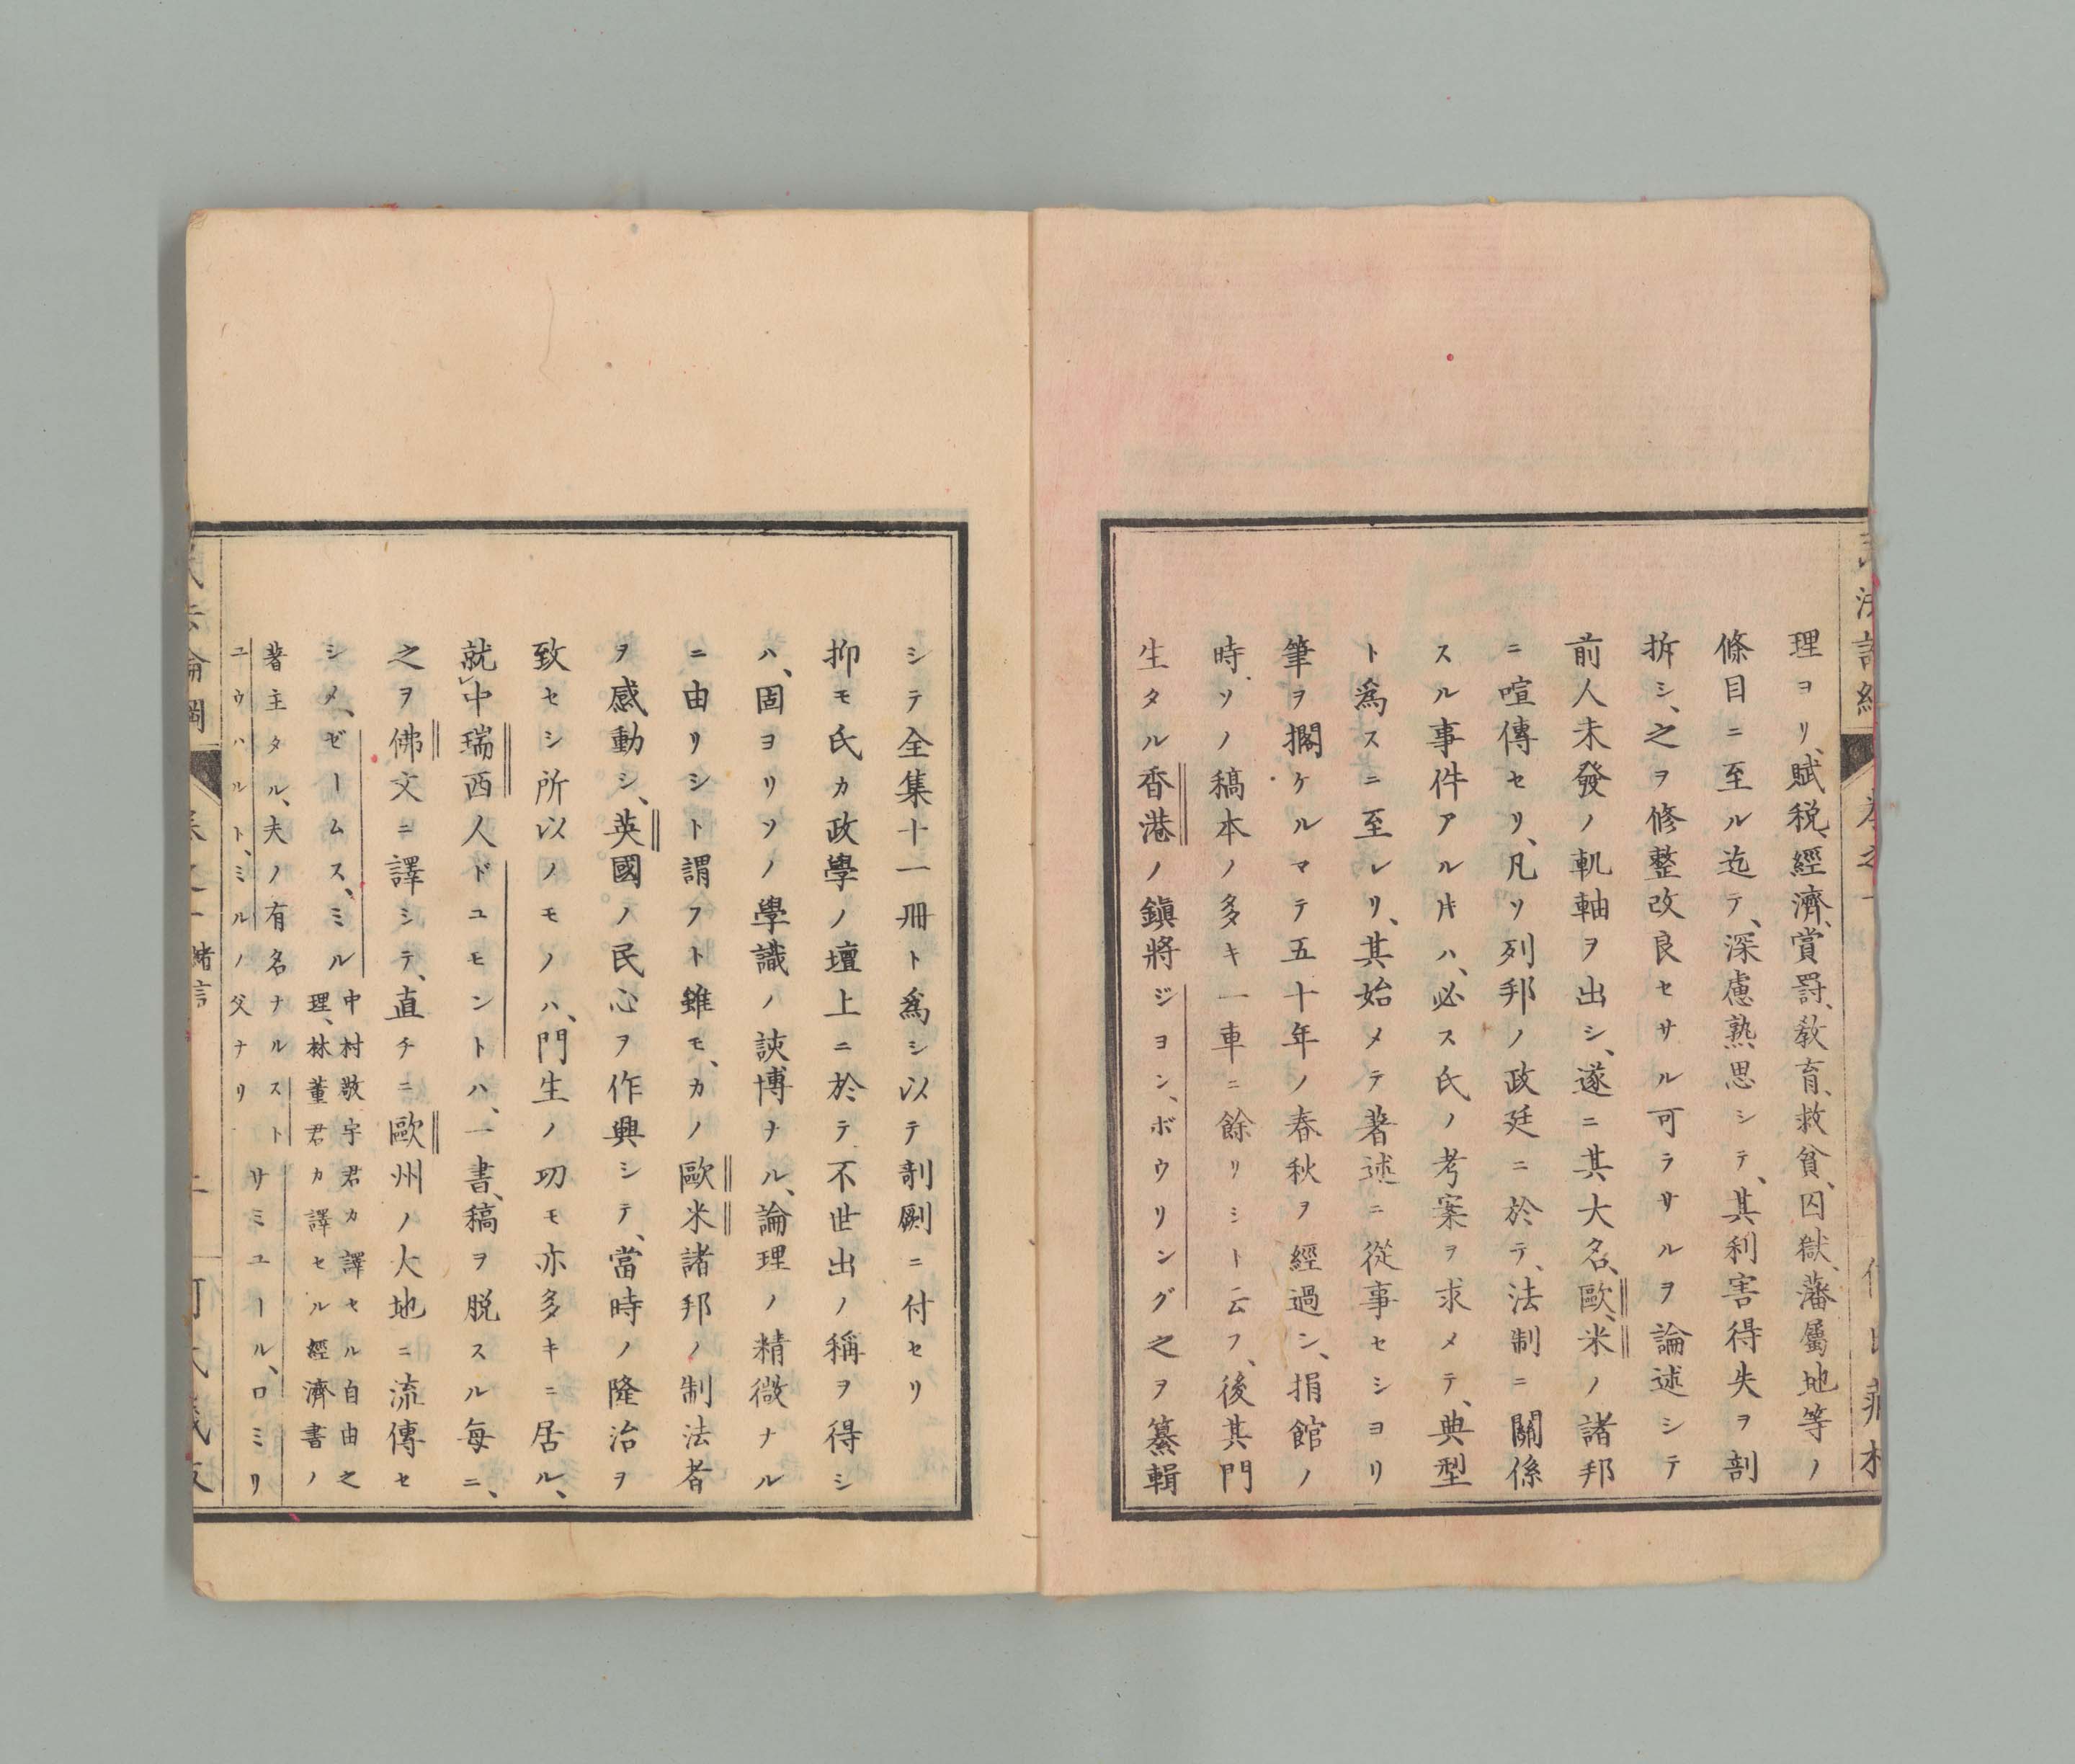 理ヨリ、賦税、經濟、賞罸、敎育、救貧、囚獄、藩屬地等ノ
條目ニ至ル迄テ、深慮熟思シテ、其利害得失ヲ剖
拆シ、之ヲ修整改良セサル可ラサルヲ論述シテ
前人未發ノ軋軸ヲ出シ、遂ニ其大名、歐、米ノ諸邦
ニ喧傳セリ、凡ソ列邦ノ政廷ニ於テ、法制ニ關係
スル事件アルキハ、必ス氏ノ考案ヲ求メテ、典型
ト爲スニ至レリ、其始メテ著述ニ從事セシヨリ
筆ヲ擱ケルマテ五十年ノ春秋ヲ經過シ、捐館ノ
時、ソノ稿本ノ多キ一車ニ餘リシト云フ、後其門
生タル香港ノ鎭將ジヨン、ボウリング之ヲ纂輯
シテ全集十一冊ト爲シ以テ剞劂ニ付セリ
抑モ氏カ政學ノ壇上ニ於テ不世出ノ稱ヲ得シ
ハ、固ヨリソノ學識ノ該博ナル、論理ノ精微ナル
ニ由リシト謂フト雖モ、カノ歐米諸邦ノ制法者
ヲ感動シ、英國ノ民心ヲ作興シテ、當時ノ隆治ヲ
致セシ所以ノモノハ、門生ノ功モ亦多キニ居ル、
就中瑞西人ドユモントハ、一書、稿ヲ脱スル毎ニ、
之ヲ佛文ニ譯シテ、直チニ歐州ノ大地ニ流傳セ
シメ、ゼームス、ミル
中村敬宇君カ譯セル自由之
理、林董君カ譯セル經濟書ノ
著主タル、夫ノ有名ナルスト
ユウハルト、ミルノ父ナリ
サミユール、ロミリ
卷之一
緒言